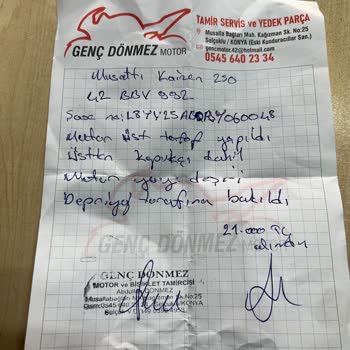 GENÇ DÖNMEZ MOTOR
TAMİR SERVİS ve YEDEK PARÇA
Musalla Bağları Mah. Kağızman Sk. No:25
Selçuklu / KONYA (Eski Kunduracılar San.)
gencmotor.42@hotmail.com
0545 640 23 34
Musatti Kaizen 250
42 BBV 992
Motor üst taraf yapıldı
Üstten kapakçı dahil
Motor yay
Depriyaj tarafına bakıldı
21.000 TL
alındı
GENÇ DÖNMEZ MOTOR
GENÇ DÖNMEZ
MOTOR ve BİSİKLET TAMİRCİSİ
Abdullah DÖNMEZ
No:25
KONYA